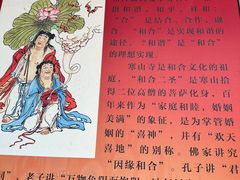 谐和拥，和平，祥和；
"合"是结合、合作，融合。"和合"是实现和谐的途径，"和谐"是"和合"的理想实现。
寒山寺是和合文化的祖庭，"和合二圣"是寒山拾得二位高僧的菩萨化身，百年来作为"家庭和睦，婚姻美满"的象征，是为掌管婚姻的"喜神"，并有"欢天喜地"的别称，佛家讲究"因缘和合"。孔子讲"君
同"，老子讲"万物负阴而抱阳